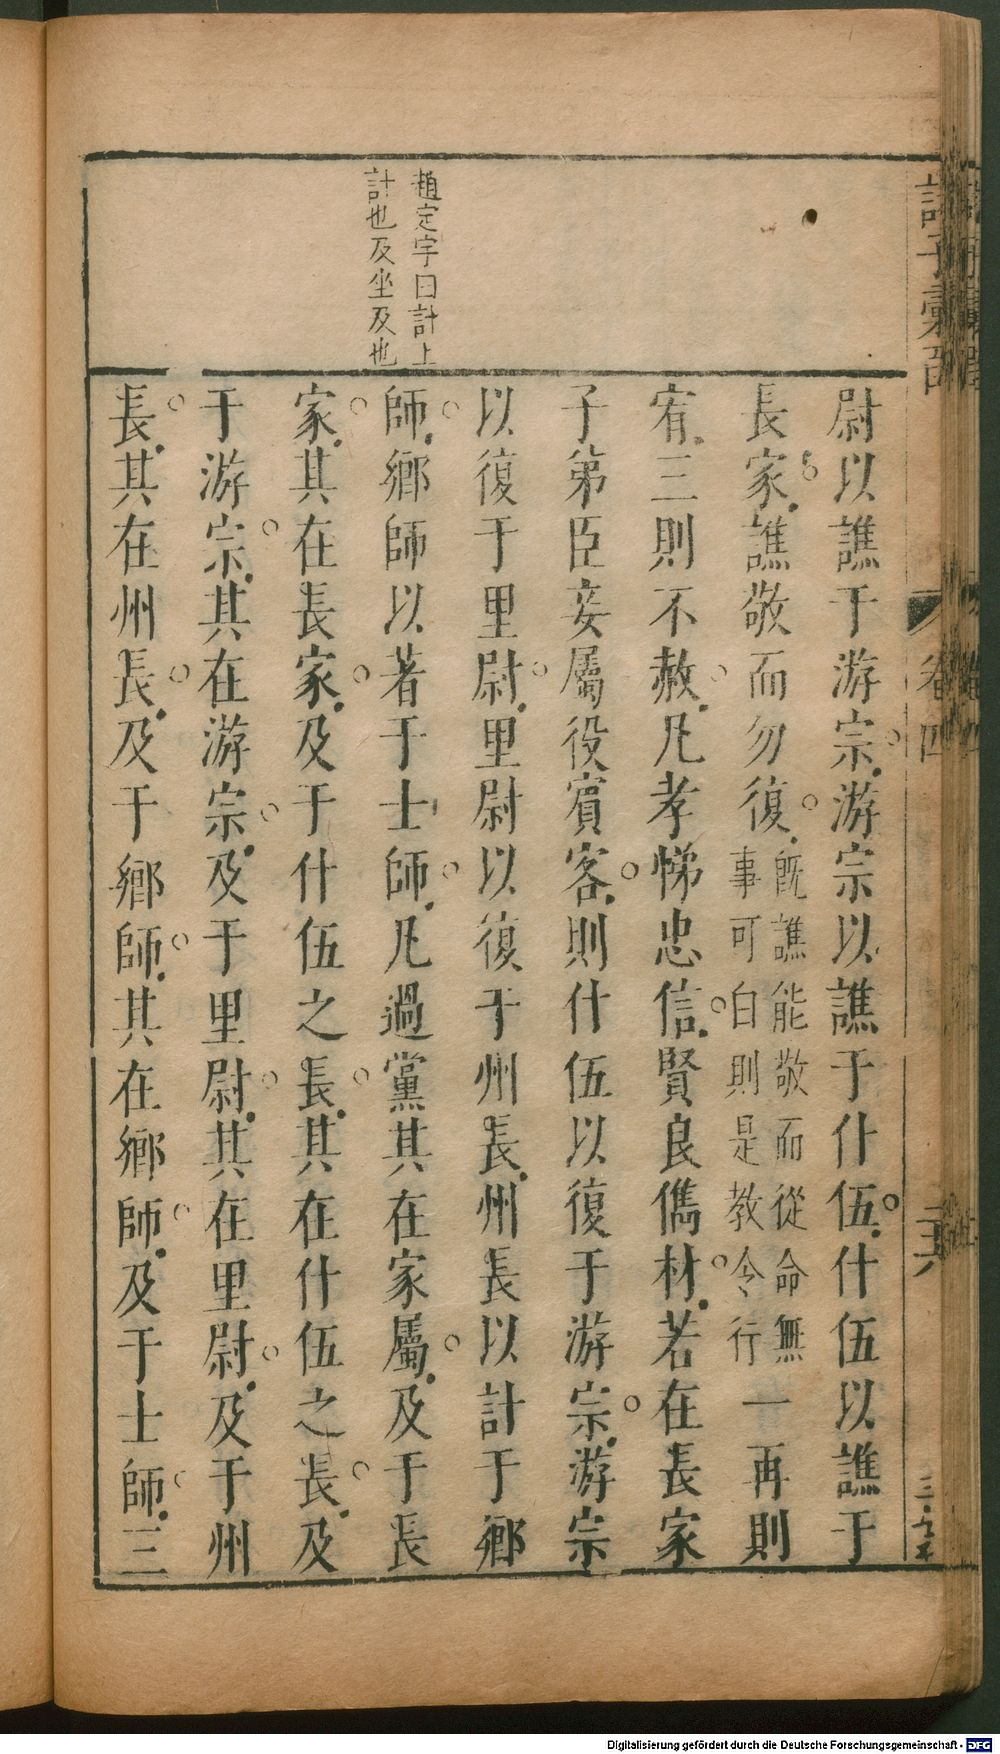 尉以譙于游宗游宗以譙于什伍什伍以譙于
長家譙敬而勿復既譙能敬而從命無事可白則是教令行一再則
宥三則不赦凡孝悌忠信賢良儁材若在長家
子弟臣妾屬役賓客則什伍以復于游宗游宗
以復于里尉里尉以復于州長州長以計于鄉
師鄉師以著于士師凡過黨其在家屬及于長
家其在長家及于什伍之長其在什伍之長及
于游宗其在游宗及于里尉其在里尉及于州
長其在州長及于鄉師其在鄉師及于士師三
趙定宇曰計上
計也及坐及也
卷四
Digitalisierung gefördert durch die Deutsche Forschungsgemeinschaft - DFG